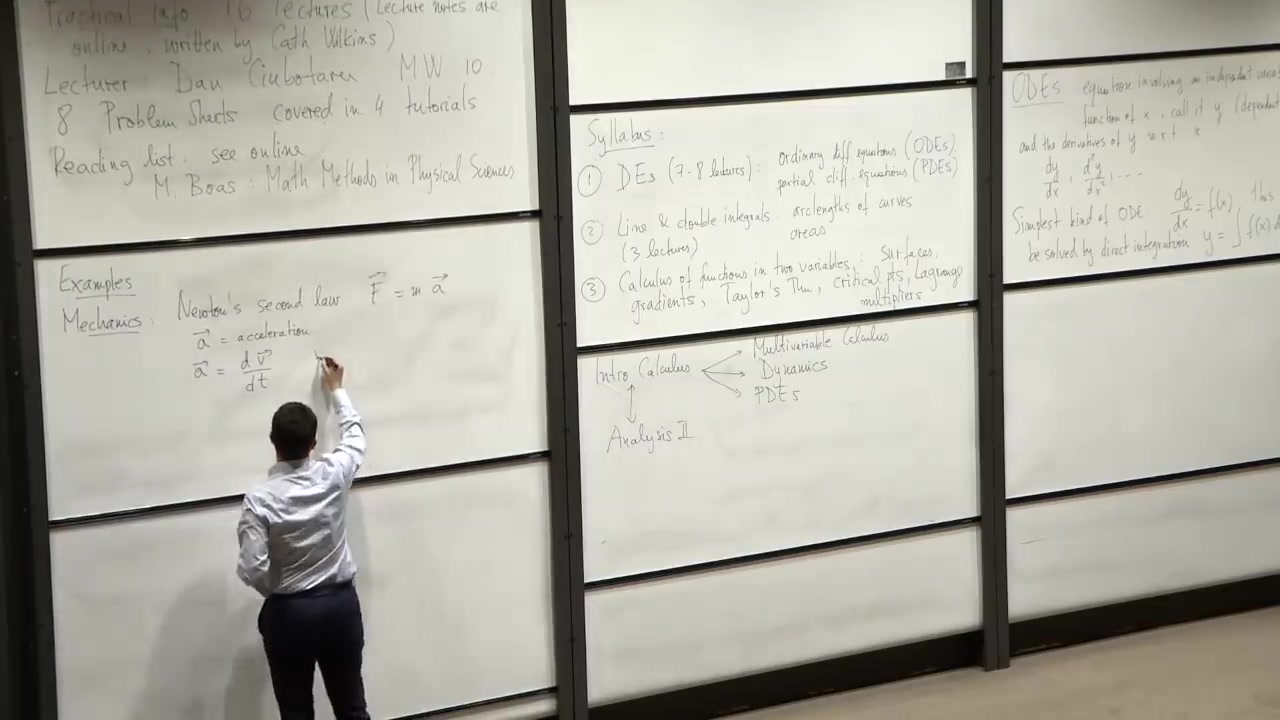 Practical info 16 lectures (Lecture notes are
online, written by Cath Wilkins)
Lecturer: Dan Ciubotaru MW 10
8 Problem Sheets covered in 4 tutorials
Reading list: see online
M. Boas: Math Methods in Physical Sciences
Examples
Mechanics: Newton's second law F⃗ = m a⃗
a⃗ = acceleration
a⃗ = dv⃗/dt
Syllabus:
① DEs (7-8 lectures): ordinary diff equations (ODEs)
partial diff. equations (PDEs)
② Line & double integrals: arclengths of curves
(3 lectures) areas
③ Calculus of functions in two variables: Surfaces,
gradients, Taylor's Thm, critical pts, Lagrange
multipliers
Intro Calculus
Multivariable Calculus
Dynamics
PDEs
Analysis II
ODEs equation involving an independent
function of x, call it y (dependent
and the derivatives of y w r t x
dy/dx, d²y/dx², ...
Simplest kind of ODE dy/dx = f(x) this
be solved by direct integration y = ∫ f(x)